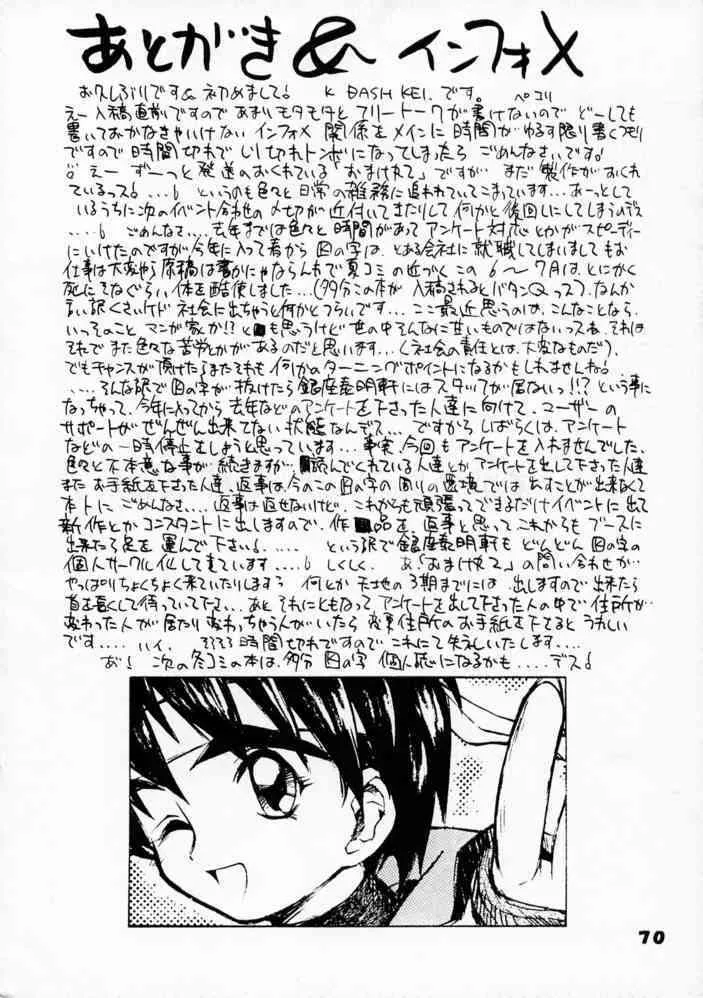 あとがき & インフォメ
お久しぶりです&初めまして! K DASH KEI. です。 ペコリ
えー入稿直前ですので あまりモタモタと フリートークが書けないので どーしても
書いておかなきゃいけない インフォメ 関係をメインに 時間が ゆるす限り書くつもり
ですので 時間切れで しり切れトンボになってしまったら ごめんなさいです!
えー ずーっと 発送のおくれている「おまけ丸て」ですが まだ 製作がおくれ
ているっス! … というのも色々と 日常の雑務に追われていてこまっています… あーっとして
いるうちに次のイベント合わせの〆切が近付いてきたりして 何かと後回しにしてしまうのデス
……… ごめんなさ… 去年までは色々と 時間があって アンケート対応とかが スピーディー
にいけたのですが 今年に入って春から 図の字は、とある会社に 就職してしまいまして もお
仕事は大変やら 原稿は書かにゃならんわで 夏コミの近づく この 6〜7月は、とにかく
死にそなぐらい 体を酷使しました…(多分この本が 入稿されるとバタンQっス)。なんか
言い訳くさいけど 社会に出ちゃうと何かとつらいです… ここ最近思うのは、こんなことなら、
いっそのこと マンガ家か!? とも思うけど 世の中そんなに甘いものではないっスね、それは
それで また色々な苦労とかが あるのだと思います… (社会の責任とは、大変なものだ)、
でもチャンスが頂けたらまたそれも 何かのターニングポイントになるかもしれませんね!
……そんな訳で 図の字が 抜けたら 銀座泰明軒にはスタッフが居ないっ!!? という事に
なっちゃって、今年に入ってから 去年などのアンケートを下さった人達に向けて、ユーザーの
サポートが ぜんぜん出来てない 状態なんデス… ですから しばらくは、アンケート
などの 一時停止をしようと思っています… 事実、今回も アンケートを入れませんでした、
色々と 不本意な事が 続きますが、読んでくれている人達とか アンケートを出して下さった人達
また お手紙を下さった人達、返事は、今のこの図の字の周りの環境では 出すことが出来なくて
本トに ごめんなさ… 返事は返せないけど、これからも頑張ってできるだけイベントに出て
新作とか コンスタントに出しますので、作品を、返事と思って これからも ブースに
出来たら足を 運んで下さい! …… という訳で銀座泰明軒も どんどん 図の字の
個人サークル化して来ています…! しくしく、 あ「おまけ丸て」の問い合わせが…
やっぱりちょくちょく来ていたりします? 何とか 天地の3期までには 出しますので 出来たら
首を長くして待っていて下さ… あと それにともなって アンケートを出して下さった人の中で 住所が
変わった人が居たり 変わっちゃうんがいたら 変更住所の お手紙を下さると うれしい
です…… ハイ、 そろそろ時間切れですので これにて失礼いたします……
お! 次の冬コミの本は、多分 図の字 個人誌になるかも ……デス!
70